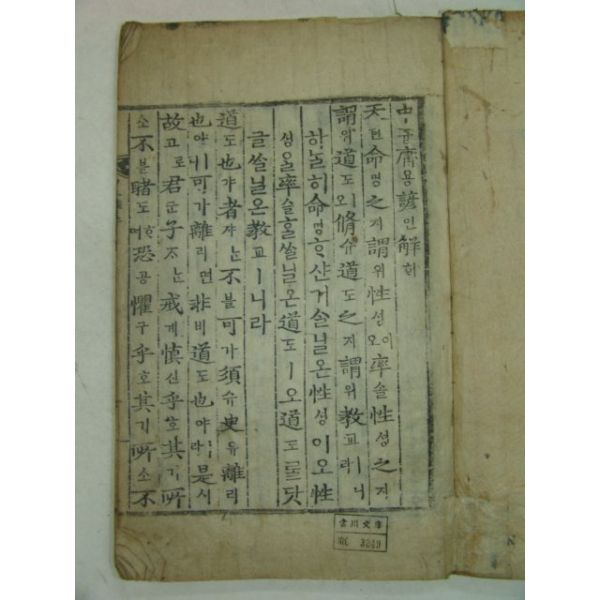 中듕庸용諺언解ᄒᆡ
天텬命명之지謂위性셩이오率솔性셩之지
謂위道도ㅣ오脩슈道도之지謂위敎교ㅣ라
하ᄂᆞᆯ히命명ᄒᆞ샨거ᄉᆞᆯ닐온性셩이오性
셩을率솔홀ᄊᆞᆯ닐온道도ㅣ오道도ᄅᆞᆯ닷
글ᄊᆞᆯ닐온敎교ㅣ니라
道도也야者쟈ᄂᆞᆫ不블可가須슈臾유離리
也야ㅣ니可가離리면非비道도也야ㅣ라是시
故고로君군子ᄌᆞᄂᆞᆫ戒계愼신乎호其기所
소不블睹도ᄒᆞ며恐공懼구乎호其기所소不
文庫